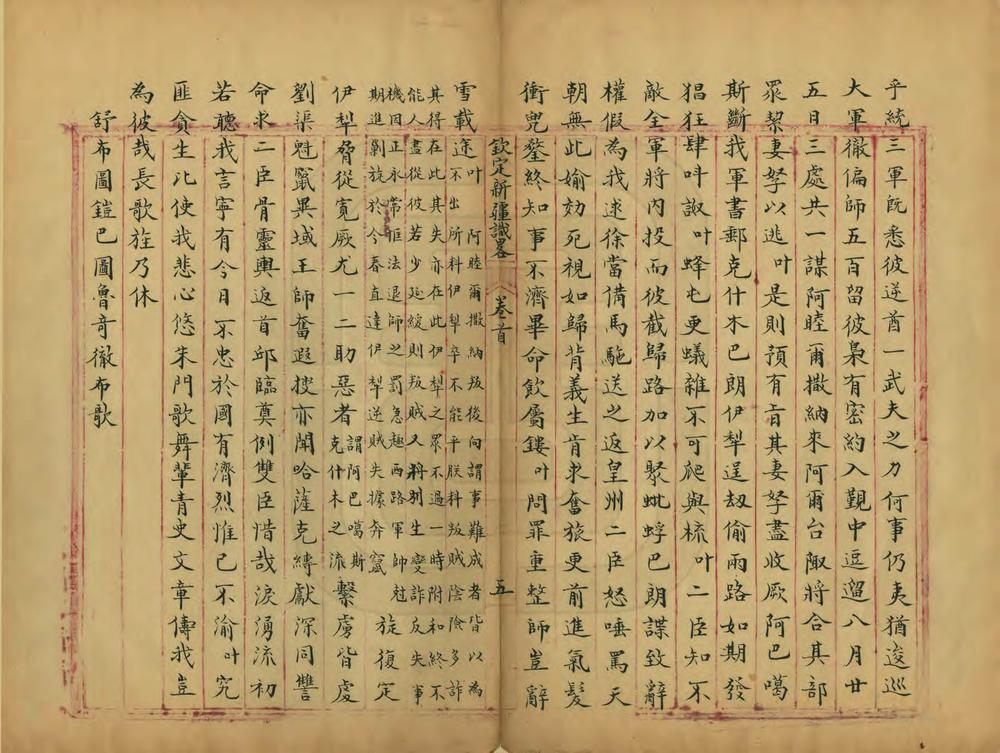 乎統三軍既悉彼逆酋一武夫之力何事仍夷猶逡巡
大軍徹偏師五百留彼梟有密約入覲中逗遛八月廿
五日三處共一謀阿睦爾撒納來阿爾台陬將合其部
眾挈妻孥以逃叶是則預有旨其妻孥盡收厥阿巴噶
斯斷我軍書郵克什木巴朗伊犁逞劫偷兩路如期發
猖狂肆呌譈叶蜂屯更蟻雜不可爬與梳叶二臣知不
敵全軍將內投而彼截歸路加以聚蚍蜉巴朗謀致辭
權假為我逑徐當備馬駞送之返皇州二臣怒唾罵天
朝無此婾効死視如歸背義生肯求奮旅更前進氣髮
衝兜鍪終知事不濟畢命飲屬鏤叶問罪重整師豈辭
欽定新疆識畧 卷首 五
雪載塗叶阿睦爾撒納叛後向謂事難成者皆以為
不出所料伊犁卒不能平朕料叛賊陰險多詐
其得在此其失亦在此伊犁之眾不過一時附和終不
能人盡從彼若少延緩則叛賊又將別生變詐反失事
機因正永常恇法退師之罰急趣西路軍師尅
期進剿旋於今春直達伊犁逆賊失據奔竄旋復定
伊犁脅從寬厥尤一二助惡者謂阿巴噶斯
克什木之流繫虜皆處
劉渠魁竄異域王師奮遐搜亦聞哈薩克縳獻深同讐
命求二臣骨靈輿返首邱臨奠例雙臣惜哉淚湧流初
若聽我言寧有今日不忠於國有濟烈惟已不渝叶究
匪貪生比使我悲心悠朱門歌舞輩青史文章傳我豈
為彼哉長歌旌乃休
舒布圖鎧巴圖魯奇徹布歌